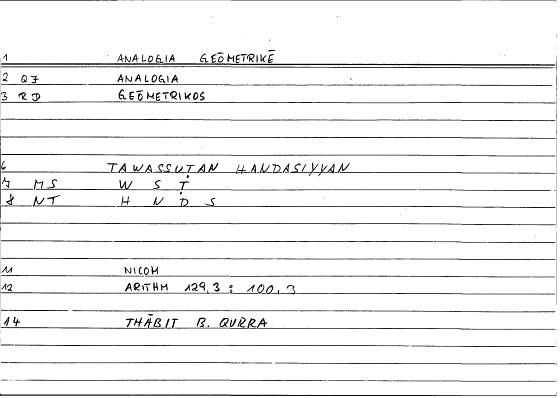 1 ANALOGIA GEŌMETRIKĒ
2 QJ ANALOGIA
3 RD GEŌMETRIKOS
6 TAWASSUṬAN HANDASIYYAN
7 MS W S Ṭ
8 NT H N D S
11 NICOM
12 ARITHM 129,3 : 100,3
14 THĀBIT B. QURRA